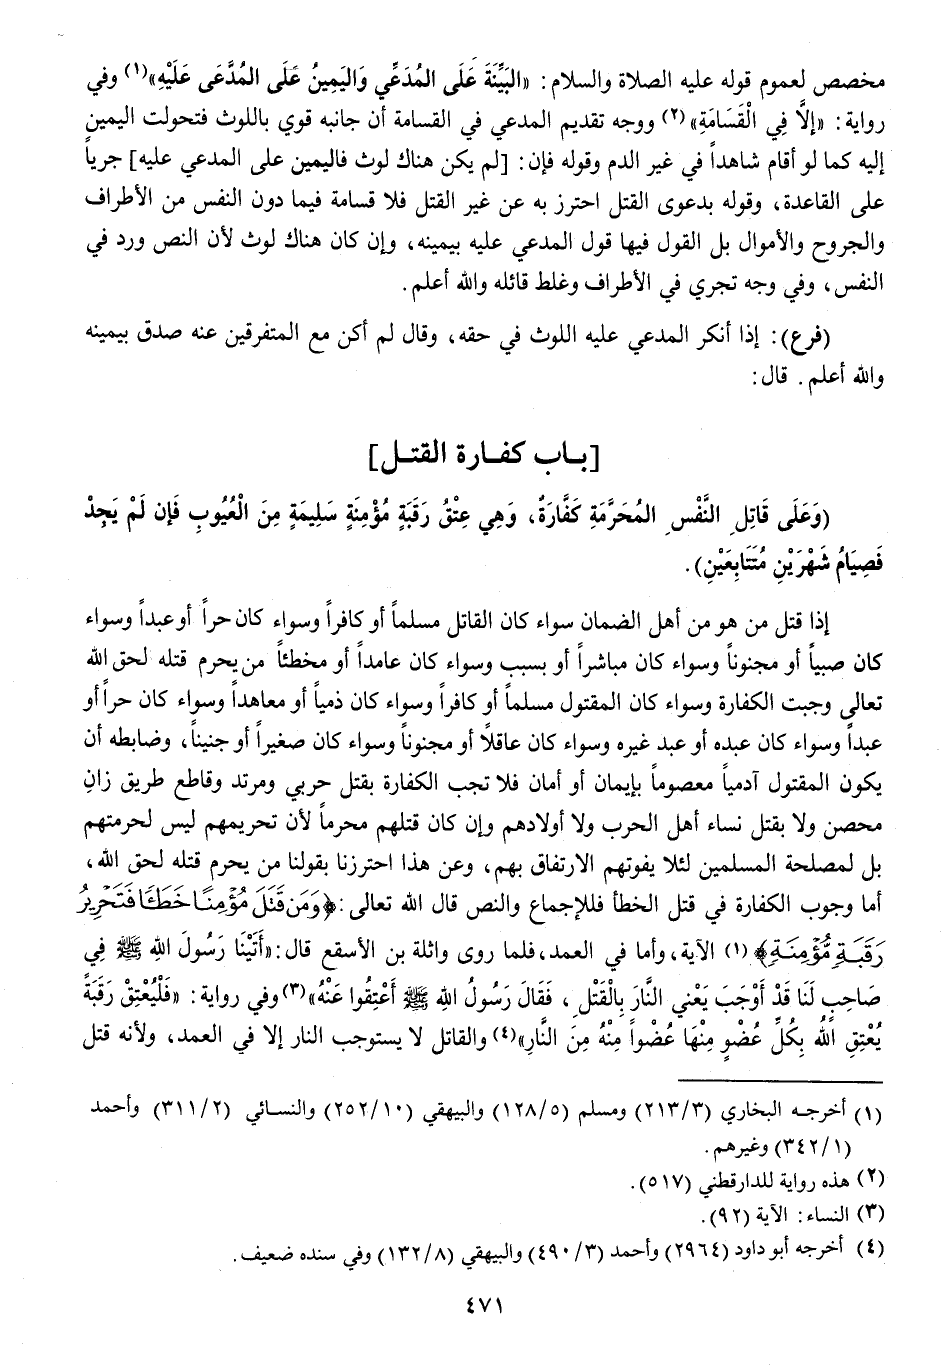 مخصص لعموم قوله عليه الصلاة والسلام: «البَيِّنَةَ عَلَى المُدَعِّي وَاليَمِينُ عَلَى المُدَّعَى عَلَيْهِ»(١) وفي
رواية: «إلَّا فِي الْقَسَامَةِ»(٢) ووجه تقديم المدعي في القسامة أن جانبه قوي باللوث فتحولت اليمين
إليه كما لو أقام شاهداً في غير الدم وقوله فإن: [لم يكن هناك لوث فاليمين على المدعي عليه] جرياً
على القاعدة، وقوله بدعوى القتل احترز به عن غير القتل فلا قسامة فيما دون النفس من الأطراف
والجروح والأموال بل القول فيها قول المدعي عليه بيمينه، وإن كان هناك لوث لأن النص ورد في
النفس، وفي وجه تجري في الأطراف وغلط قائله والله أعلم.
(فرع): إذا أنكر المدعي عليه اللوث في حقه، وقال لم أكن مع المتفرقين عنه صدق بيمينه
والله أعلم. قال:
[باب كفارة القتل]
(وَعَلَى قَاتِلِ النَّفْسِ المُحَرَّمَةِ كَفَّارَةٌ، وَهِي عِتْقُ رَقَبَةٍ مُؤْمِنَةٍ سَلِيمَةٍ مِنَ الْعُيُوبِ فَإن لَمْ يَجِدْ
فَصِيَامُ شَهْرَيْنِ مُتَتَابِعَيْنِ).
إذا قتل من هو من أهل الضمان سواء كان القاتل مسلماً أو كافراً وسواء كان حراً أو عبداً وسواء
كان صبياً أو مجنوناً وسواء كان مباشراً أو بسبب وسواء كان عامداً أو مخطئاً من يحرم قتله لحق الله
تعالى وجبت الكفارة وسواء كان المقتول مسلماً أو كافراً وسواء كان ذمياً أو معاهداً وسواء كان حراً أو
عبداً وسواء كان عبده أو عبد غيره وسواء كان عاقلاً أو مجنوناً وسواء كان صغيراً أو جنيناً، وضابطه أن
يكون المقتول آدمياً معصوماً بإيمان أو أمان فلا تجب الكفارة بقتل حربي ومرتد وقاطع طريق زانِ
محصن ولا بقتل نساء أهل الحرب ولا أولادهم وإن كان قتلهم محرماً لأن تحريمهم ليس لحرمتهم
بل لمصلحة المسلمين لئلا يفوتهم الارتفاق بهم، وعن هذا احترزنا بقولنا من يحرم قتله لحق الله،
أما وجوب الكفارة في قتل الخطأ فللإجماع والنص قال الله تعالى: ﴿وَمَن قَتَلَ مُؤْمِنًا خَطَـًٔا فَتَحْرِيرُ
رَقَبَةٍ مُّؤْمِنَةٍ﴾ (١) الآية، وأما في العمد، فلما روى واثلة بن الأسقع قال: «أَتَيْنَا رَسُولَ اللهِ ﷺ فِي
صَاحِبٍ لَنَا قَدْ أَوْجَبَ يَعْنِي النَّارَ بِالْقَتْلِ، فَقَالَ رَسُولُ اللهِ ﷺ أَعْتِقُوا عَنْهُ»(٣) وفي رواية: «فَلْيُعْتِقْ رَقَبَةً
يُعْتِقِ اللهُ بِكُلِّ عُضْوٍ مِنْهَا عُضْواً مِنْهُ مِنَ النَّارِ»(٤) والقاتل لا يستوجب النار إلا في العمد، ولأنه قتل
(١) أخرجه البخاري (٢١٣/٣) ومسلم (١٢٨/٥) والبيهقي (٢٥٢/١٠) والنسائي (٣١١/٢) وأحمد
(٣٤٢/١) وغيرهم.
(٢) هذه رواية للدارقطني (٥١٧).
(٣) النساء: الآية (٩٢).
(٤) أخرجه أبو داود (٢٩٦٤) وأحمد (٤٩٠/٣) والبيهقي (١٣٢/٨) وفي سنده ضعيف.
٤٧١